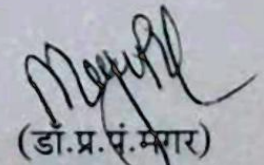 (डॉ.प्र.पं.मगर)